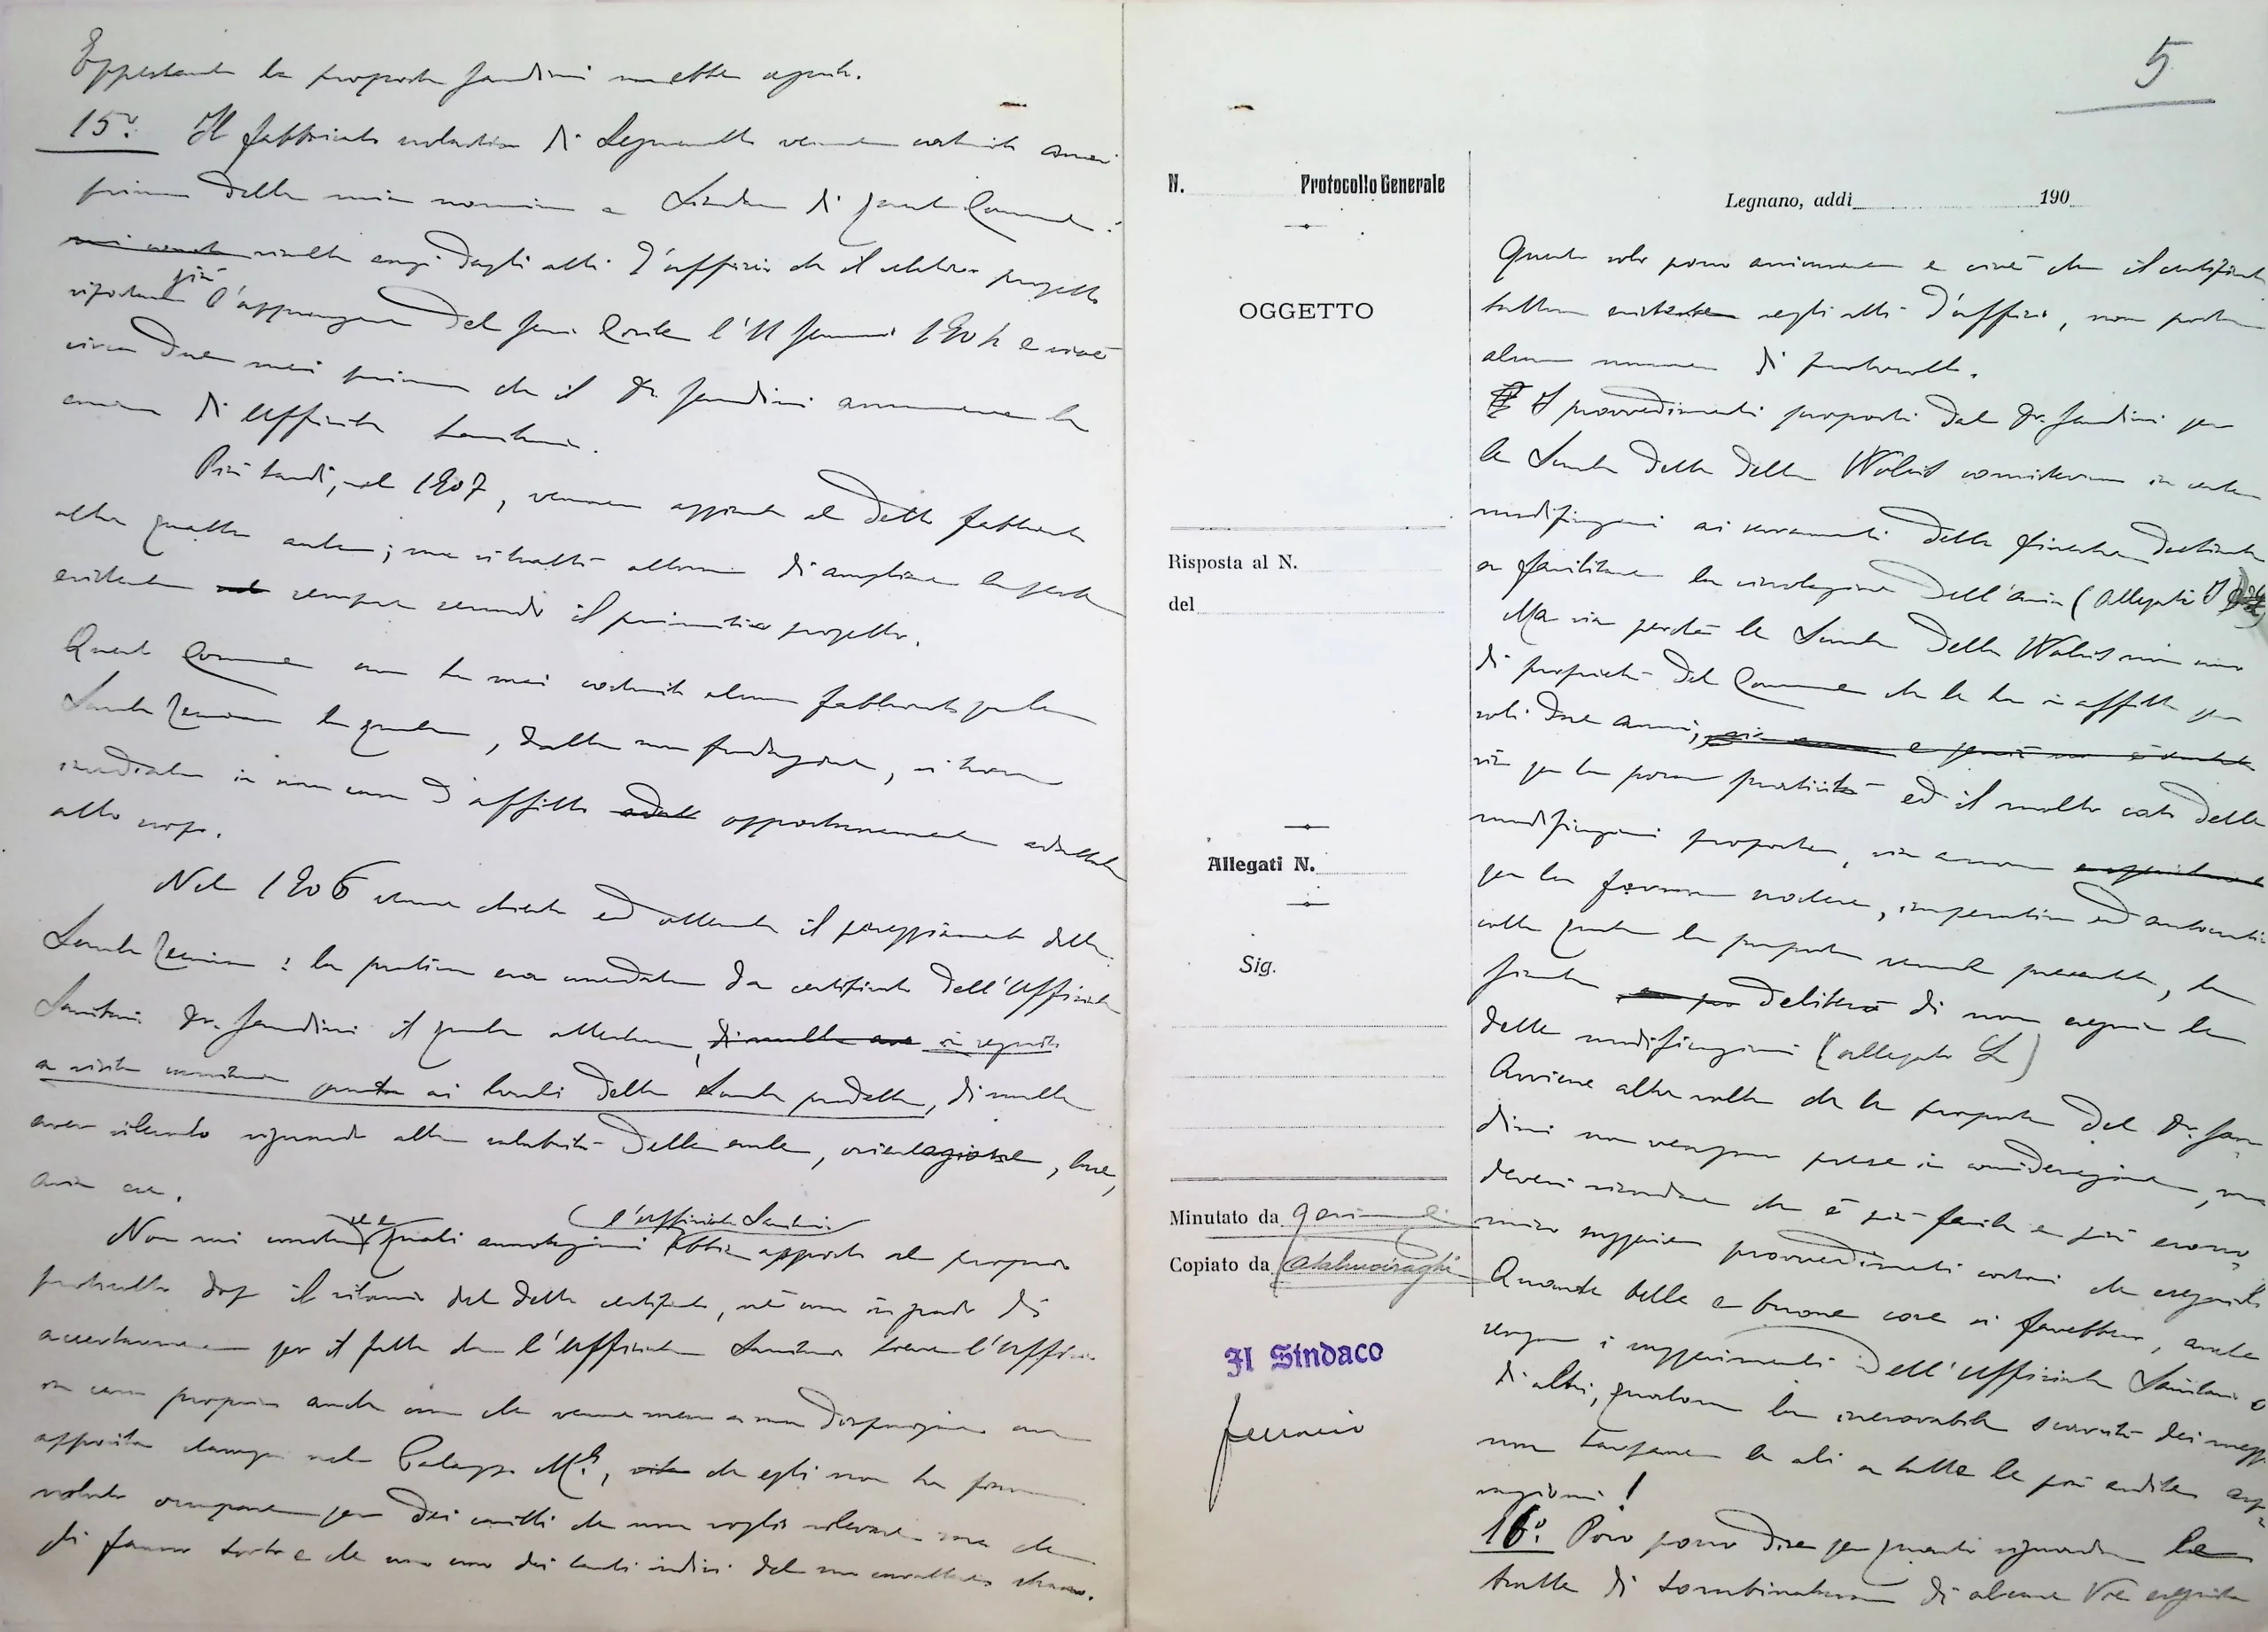 la proposta Sandini non ebbe seguito.
15º. Il fabbricato scolastico di Legnanello venne costruito
prima della mia nomina a Sindaco di questo Comune:
risulta anzi dagli atti d'ufficio che il relativo progetto
già
l'approvazione del Genio Civile l'11 1904 e cioè
circa due mesi prima che il Dr. Sandini assumesse la
carica di Ufficiale Sanitario.
Più tardi, nel 1907, vennero aggiunte al detto fabbricato
altre quattro aule; ma si trattò allora di ampliare la parte
esistente sempre secondo il primitivo progetto.
Questo Comune non ha mai costruito alcun fabbricato per la
Scuola Tecnica la quale, dalla sua fondazione, si trova
in una casa d'affitto opportunamente adattata
allo scopo.
Nel 1906 venne chiesto ed ottenuto il pareggiamento della
Scuola Tecnica: la pratica era corredata da certificato dell'Ufficiale
Sanitario Dr. Sandini il quale attestava, in seguito
a visita sanitaria ai locali della Scuola predetta, di nulla
aver rilevato riguardo alla salubrità delle aule, orientazione, luce,
aria ecc.
l'Ufficiale Sanitario
Non mi consta quali annotazioni abbia apposto al proprio
protocollo dopo il rilascio del detto certificato, né sono in grado di
accertarmene per il fatto che l'Ufficiale Sanitario tiene l'Ufficio
in casa propria anche ora che venne messa a sua disposizione una
apposita stanza nel Palazzo M.le, che egli non ha
voluto occupare per dei che non voglio rilevare ma che
gli fanno torto e che sono uno dei tanti indizi del suo carattere strano.
5
N. Protocollo Generale
OGGETTO
Risposta al N.
del
Allegati N.
Sig.
Minutato da
Copiato da
Il Sindaco
Legnano, addì 190
Questo solo posso assicurare e cioè che il certificato
tuttora esistente negli atti d'ufficio, non porta
alcun numero di protocollo.
I provvedimenti proposti dal Dr. Sandini per
le Scuole dette della Wolsit consistevano in certe
modificazioni ai serramenti delle finestre destinate
a facilitare la circolazione dell'aria (allegati I
Ma sia perché le Scuole della Wolsit non sono
di proprietà del Comune che le ha in affitto per
soli due anni;
sia per la poca praticità ed il molto costo delle
modificazioni proposte, sia ancora
per la forma scortese, imperativa ed autocratica
colla quale la proposta venne presentata, la
Giunta deliberò di non eseguire le
dette modificazioni (allegato L)
Avviene altre volte che le proposte del Dr. San-
dini non vengono prese in considerazione, ma
devesi ricordare che è più facile e più econo-
mico suggerire provvedimenti costosi che eseguirli
Quante belle e buone cose si farebbero, anche
senza i suggerimenti dell'Ufficiale Sanitario o
di altri, qualora la inesorabile scarsità dei mezzi
non tarpasse le ali a tutte le più ardite aspi-
razioni!
16º. Poco posso dire per quanto riguarda le
tratte di tombinatura di alcune Vie eseguite